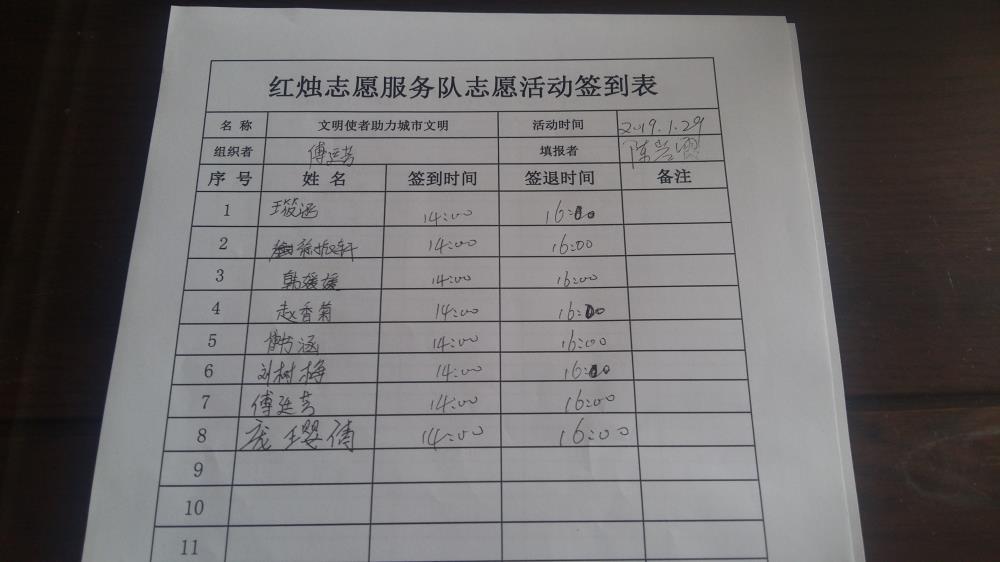 红烛志愿服务队志愿活动签到表
名 称 文明使者助力城市文明 活动时间 2019.1.29
组织者 傅廷芳 填报者 陈
序 号 姓 名 签到时间 签退时间 备注
1 王筱涵 14:00 16:00
2 徐振轩 14:00 16:00
3 韩媛媛 14:00 16:00
4 赵香菊 14:00 16:00
5 涵 14:00 16:00
6 刘树梅 14:00 16:00
7 傅廷芳 14:00 16:00
8 庞璎倩 14:00 16:00
9
10
11